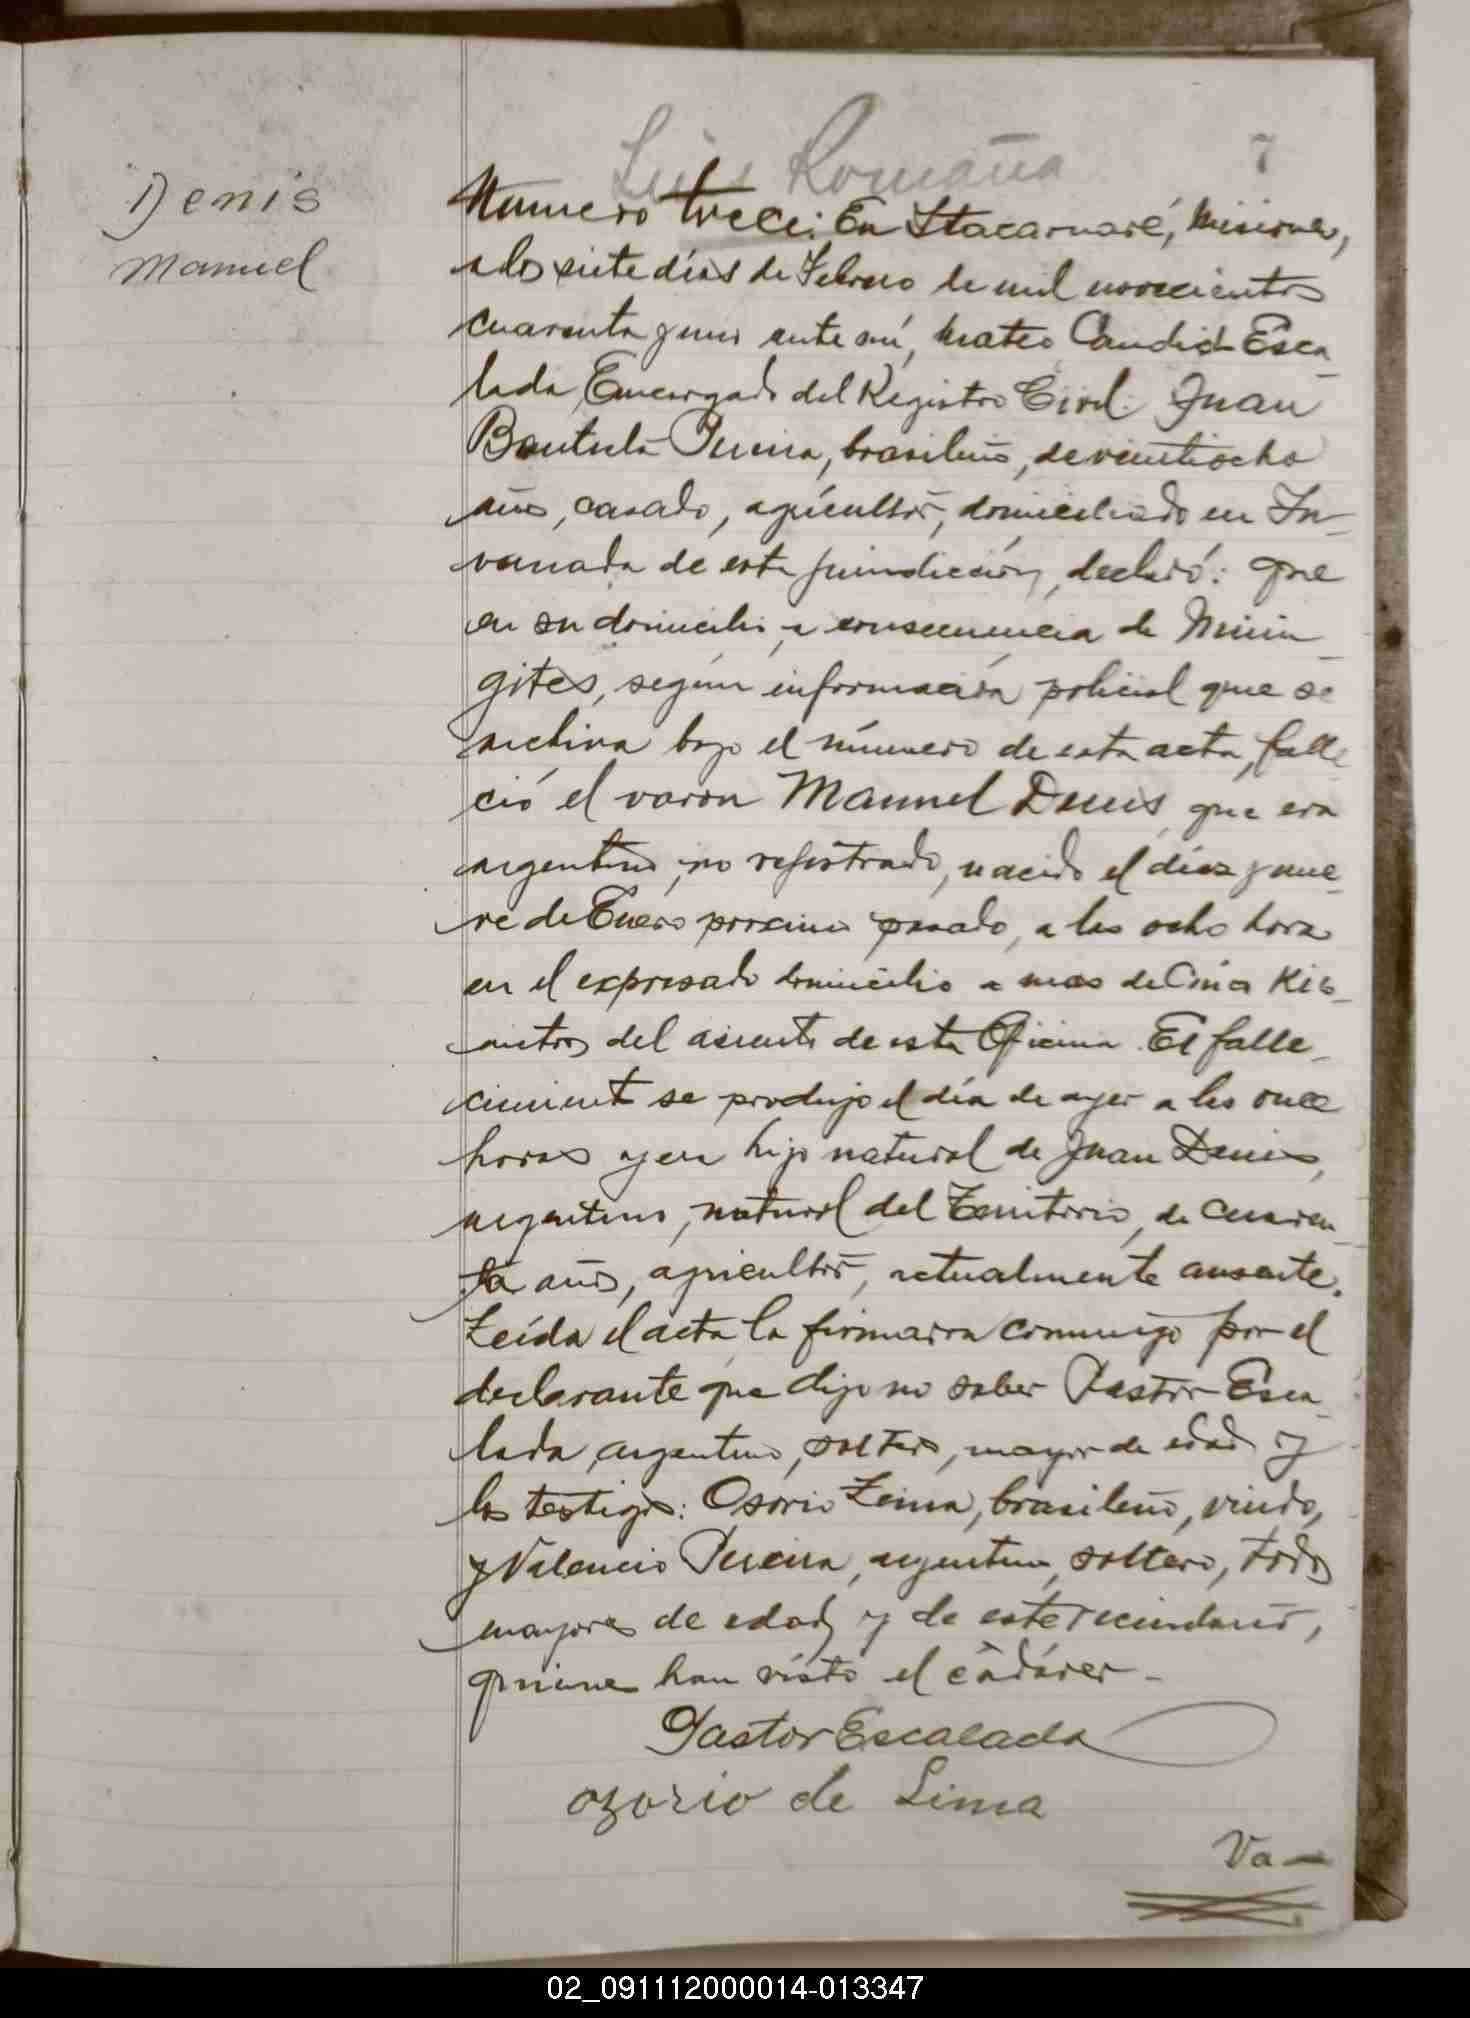 Luis Romaña
7
Denis
Manuel
Numero trece: En Itacaruaré, Misiones,
a los siete días de Febrero de mil novecientos
cuarenta y uno ante mí, Mateo Candido Esca-
lada Encargado del Registro Civil. Juan
Bautista Pereira, brasileño, de veintiocho
años, casado, agricultor, domiciliado en In-
vernada de esta jurisdicción, declaró: que
en su domicilio, a consecuencia de Menin-
gites, según información policial que se
archiva bajo el número de esta acta, falle
ció el varon Manuel Denis, que era
argentino, no registrado, nacido el diez y nue-
ve de Enero proximo pasado, a las ocho horas
en el expresado domicilio a mas de Cinco Kilo-
metros del asiento de esta Oficina. El falle-
cimiento se produjo el día de ayer a las once
horas y era hijo natural de Juan Denis,
argentino, natural del Territorio, de cuaren-
ta años, agricultor, actualmente ausente.
Leída el acta, la firmaron conmigo por el
declarante que dijo no saber Pastor Esca-
lada, argentino, soltero, mayor de edad y
los testigos: Osorio Lima, brasileño, viudo,
y Valencio Pereira, argentino, soltero, todos
mayores de edad y de este vecindario,
quienes han visto el cadáver-
Pastor Escalada
ozorio de Lima
Va-
02_091112000014-013347